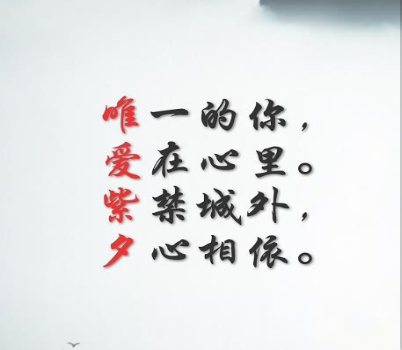 唯一的你，
爱在心里。
紫禁城外，
夕心相依。